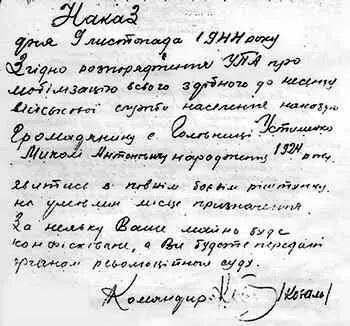 Наказ
дня 9 листопада 1944 року
Згідно розпорядження УПА про
мобілізацію всього здібного до несення
військової служби населення наказую
громадянину с. Головниці Устименко
Миколі Антоновичу народження 1924 року.
явитись в повнім боєвім ріштунку
на умовлене місце призначення
За неявку Ваше майно буде
конфісковане, а Ви будете передані
органам революційного суду.
Командир: /Коваль/